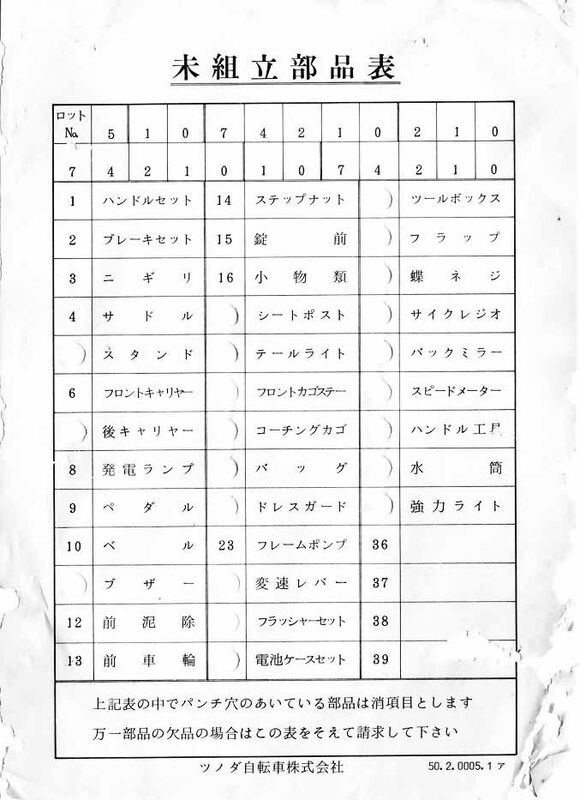 未組立部品表
ロット No. 5 1 0 7 4 2 1 0 2 1 0
7 4 2 1 0 1 0 7 4 2 1 0
1 ハンドルセット 14 ステップナット ツールボックス
2 ブレーキセット 15 錠前 フラップ
3 ニギリ 16 小物類 蝶ネジ
4 サドル シートポスト サイクレジオ
スタンド テールライト バックミラー
6 フロントキャリヤー フロントカゴステー スピードメーター
後キャリヤー コーチングカゴ ハンドル工具
8 発電ランプ バッグ 水筒
9 ペダル ドレスガード 強力ライト
10 ベル 23 フレームポンプ 36
ブザー 変速レバー 37
12 前泥除 フラッシャーセット 38
13 前車輪 電池ケースセット 39
上記表の中でパンチ穴のあいている部品は消項目とします
万一部品の欠品の場合はこの表をそえて請求して下さい
ツノダ自転車株式会社 50.2.0005.1ア